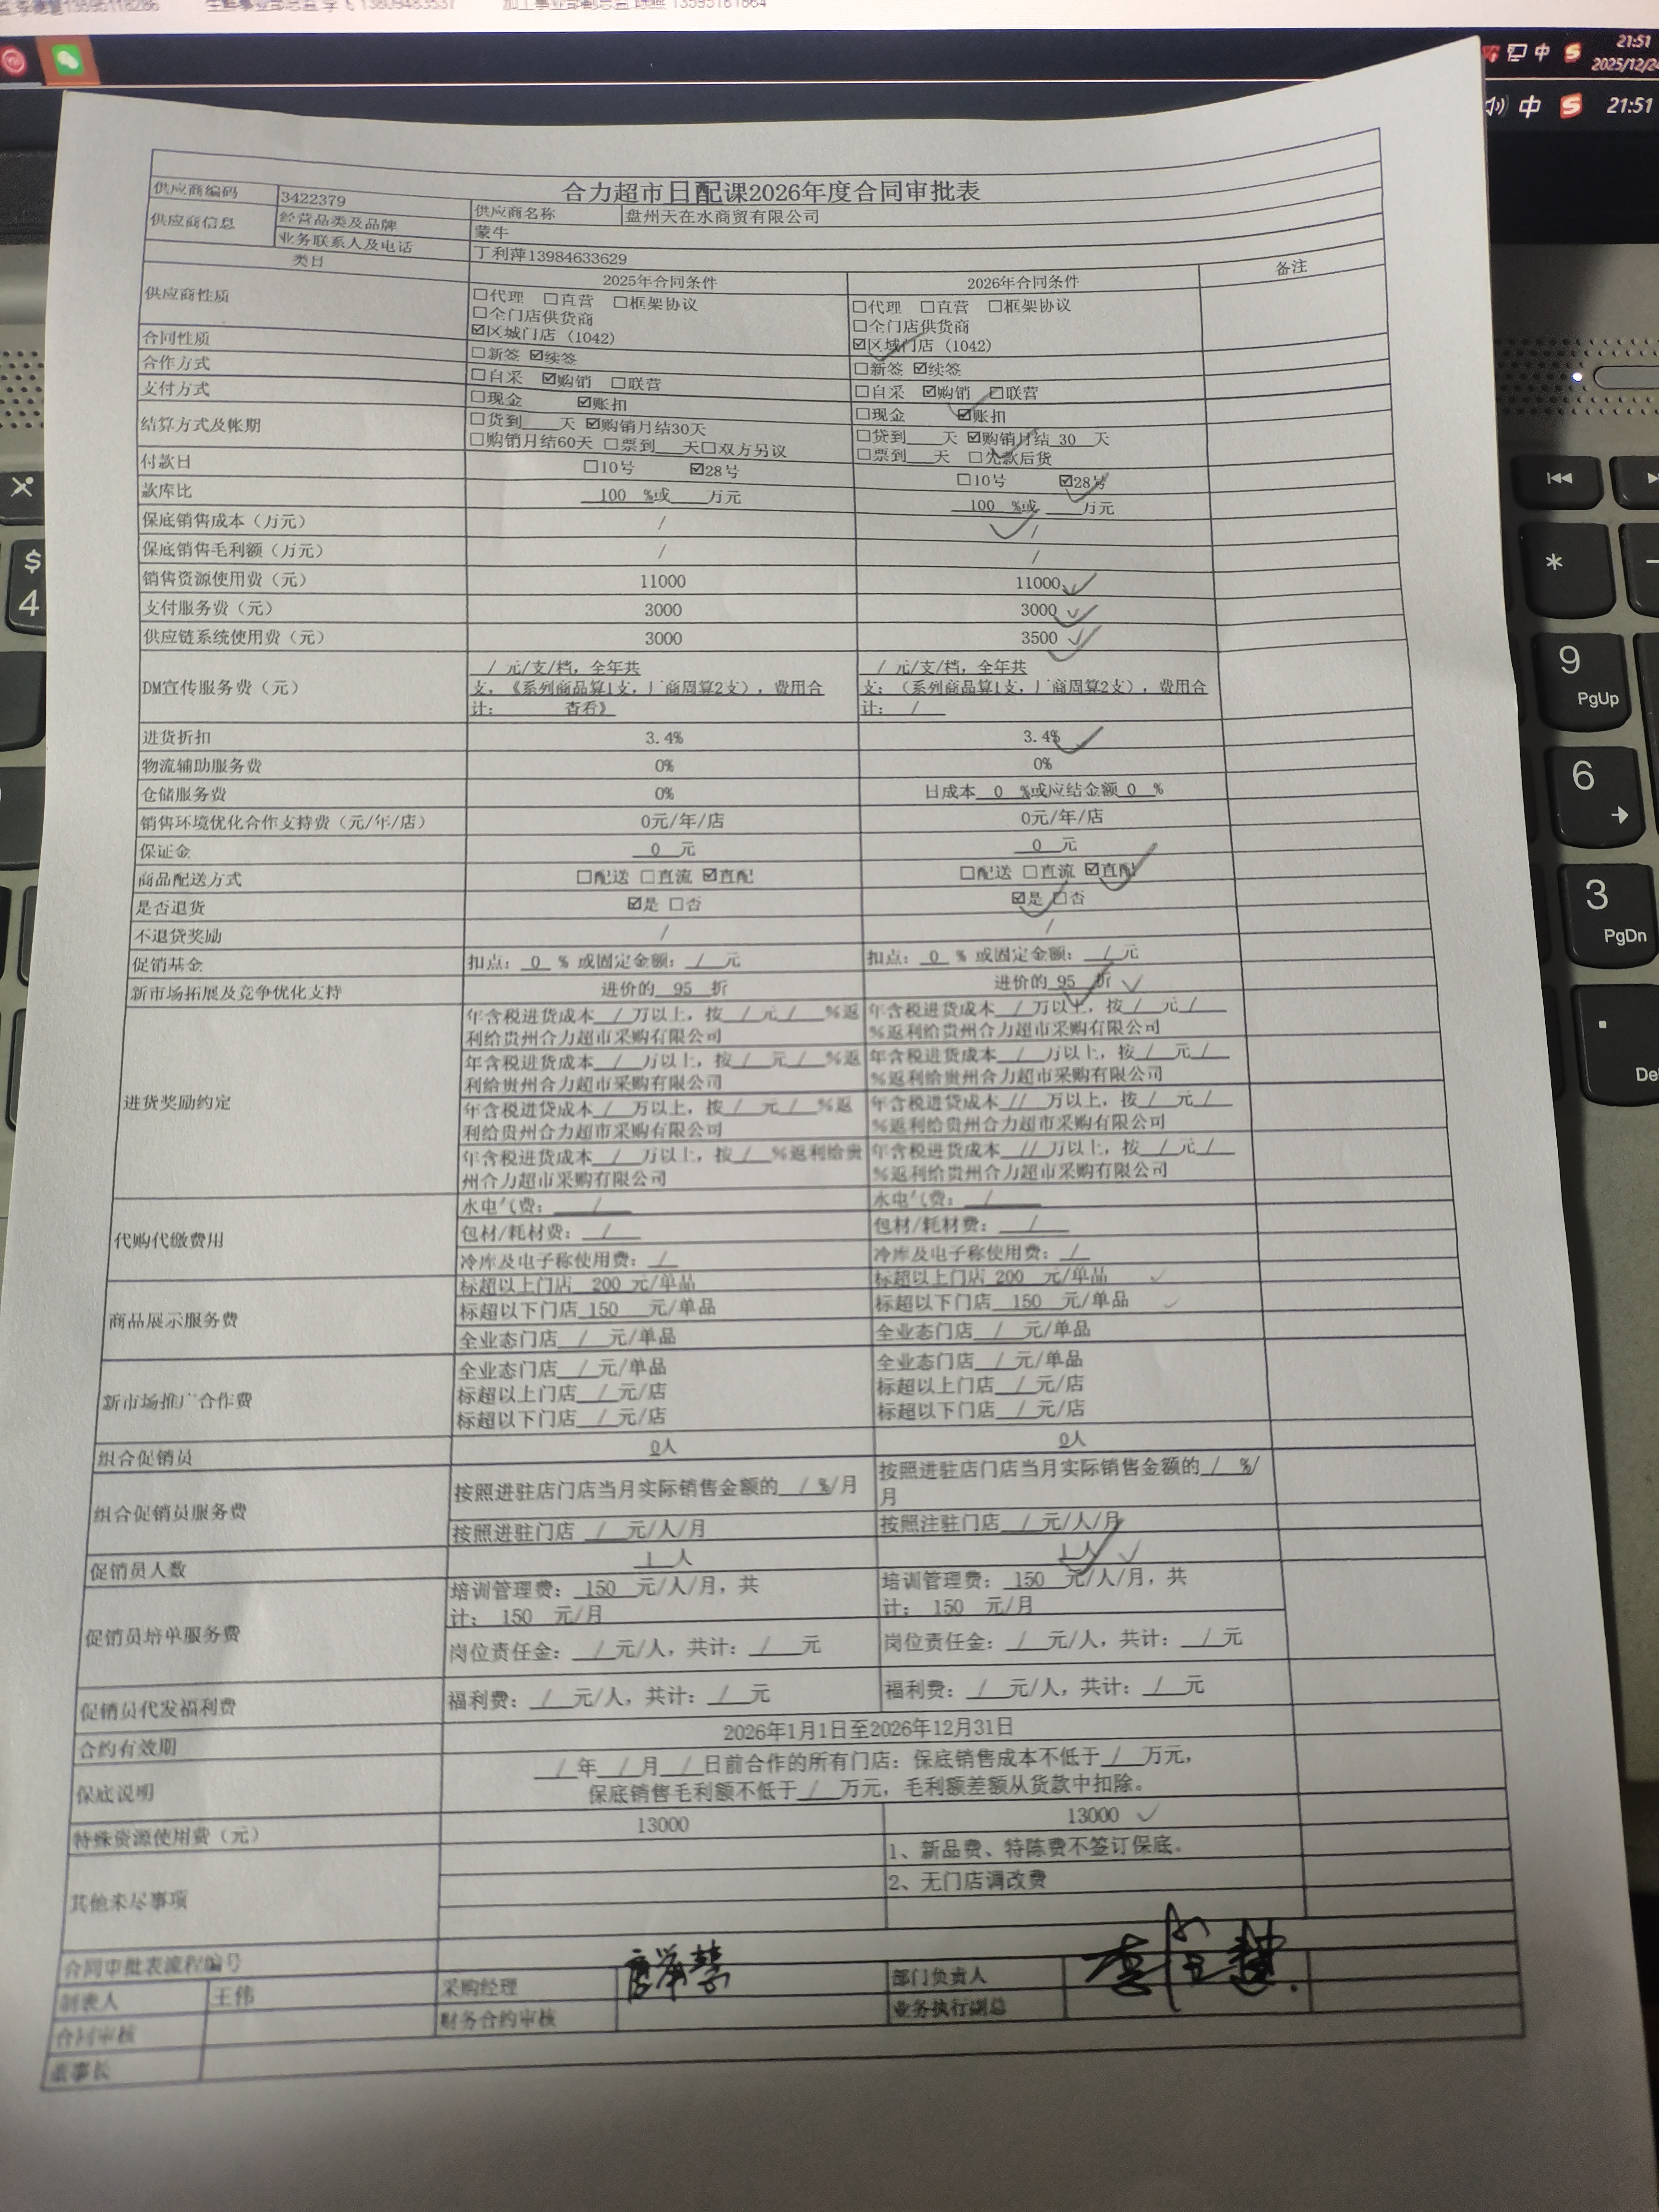 21:51
2025/12/24
中
21:51
4
$
9
PgUp
6
3
PgDn
合力超市日配课2026年度合同审批表
供应商编码 3422379 供应商名称 盘州天在水商贸有限公司
供应商信息 经营品类及品牌 蒙牛
业务联系人及电话 丁利萍13984633629
类目 2025年合同条件 2026年合同条件 备注
供应商性质 ☐代理 ☐直营 ☐框架协议 ☐代理 ☐直营 ☐框架协议
☐全门店供货商 ☐全门店供货商
☑区域门店（1042） ☑区域门店（1042）
合同性质 ☐新签 ☑续签 ☐新签 ☑续签
合作方式 ☐自采 ☑购销 ☐联营 ☐自采 ☑购销 ☐联营
支付方式 ☐现金 ☑账扣 ☐现金 ☑账扣
结算方式及帐期 ☐货到___天 ☑购销月结30天 ☐货到___天 ☑购销月结 30 天
☐购销月结60天 ☐票到___天☐双方另议 ☐票到___天 ☐先款后货
付款日 ☐10号 ☑28号 ☐10号 ☑28号
款库比 100 %或___万元 100 %或___万元
保底销售成本（万元） / /
保底销售毛利额（万元） / /
销售资源使用费（元） 11000 11000
支付服务费（元） 3000 3000
供应链系统使用费（元） 3000 3500
DM宣传服务费（元） / 元/支/档，全年共 / 元/支/档，全年共
支，《系列商品算1支，厂商周算2支），费用合 支；（系列商品算1支，厂商周算2支），费用合
计： 查看》 计： /
进货折扣 3.4% 3.4%
物流辅助服务费 0% 0%
仓储服务费 0% 日成本 0 %或应结金额 0 %
销售环境优化合作支持费（元/年/店） 0元/年/店 0元/年/店
保证金 0 元 0 元
商品配送方式 ☐配送 ☐直流 ☑直配 ☐配送 ☐直流 ☑直配
是否退货 ☑是 ☐否 ☑是 ☐否
不退货奖励 / /
促销基金 扣点： 0 % 或固定金额： / 元 扣点： 0 % 或固定金额： / 元
新市场拓展及竞争优化支持 进价的 95 折 进价的 95 折
进货奖励约定 年含税进货成本 / 万以上，按 / 元 / %返 年含税进货成本 / 万以上，按 / 元 /
利给贵州合力超市采购有限公司 %返利给贵州合力超市采购有限公司
年含税进货成本 / 万以上，按 / 元 / %返 年含税进货成本 / 万以上，按 / 元 /
利给贵州合力超市采购有限公司 %返利给贵州合力超市采购有限公司
年含税进货成本 / 万以上，按 / 元 / %返 年含税进货成本 // 万以上，按 / 元 /
利给贵州合力超市采购有限公司 %返利给贵州合力超市采购有限公司
年含税进货成本 / 万以上，按 / %返利给贵 年含税进货成本 // 万以上，按 / 元 /
州合力超市采购有限公司 %返利给贵州合力超市采购有限公司
代购代缴费用 水电气费： / 水电气费： /
包材/耗材费： / 包材/耗材费： /
冷库及电子称使用费： / 冷库及电子称使用费： /
商品展示服务费 标超以上门店 200 元/单品 标超以上门店 200 元/单品
标超以下门店 150 元/单品 标超以下门店 150 元/单品
全业态门店 / 元/单品 全业态门店 / 元/单品
新市场推广合作费 全业态门店 / 元/单品 全业态门店 / 元/单品
标超以上门店 / 元/店 标超以上门店 / 元/店
标超以下门店 / 元/店 标超以下门店 / 元/店
组合促销员 0人 0人
组合促销员服务费 按照进驻店门店当月实际销售金额的 / %/月 按照进驻店门店当月实际销售金额的 / %/
月
按照进驻门店 / 元/人/月 按照注驻门店 / 元/人/月
促销员人数 1 人 1人
促销员培单服务费 培训管理费： 150 元/人/月，共 培训管理费： 150 元/人/月，共
计： 150 元/月 计： 150 元/月
岗位责任金： / 元/人，共计： / 元 岗位责任金： / 元/人，共计： / 元
促销员代发福利费 福利费： / 元/人，共计： / 元 福利费： / 元/人，共计： / 元
合约有效期 2026年1月1日至2026年12月31日
保底说明 / 年 / 月 / 日前合作的所有门店：保底销售成本不低于 / 万元，
保底销售毛利额不低于 / 万元，毛利额差额从货款中扣除。
特殊资源使用费（元） 13000 13000
其他未尽事项 1、新品费、特陈费不签订保底。
2、无门店调改费
合同审批表流程编号
制表人 王伟 采购经理 部门负责人
合同审核 财务合约审核 业务执行副总
董事长